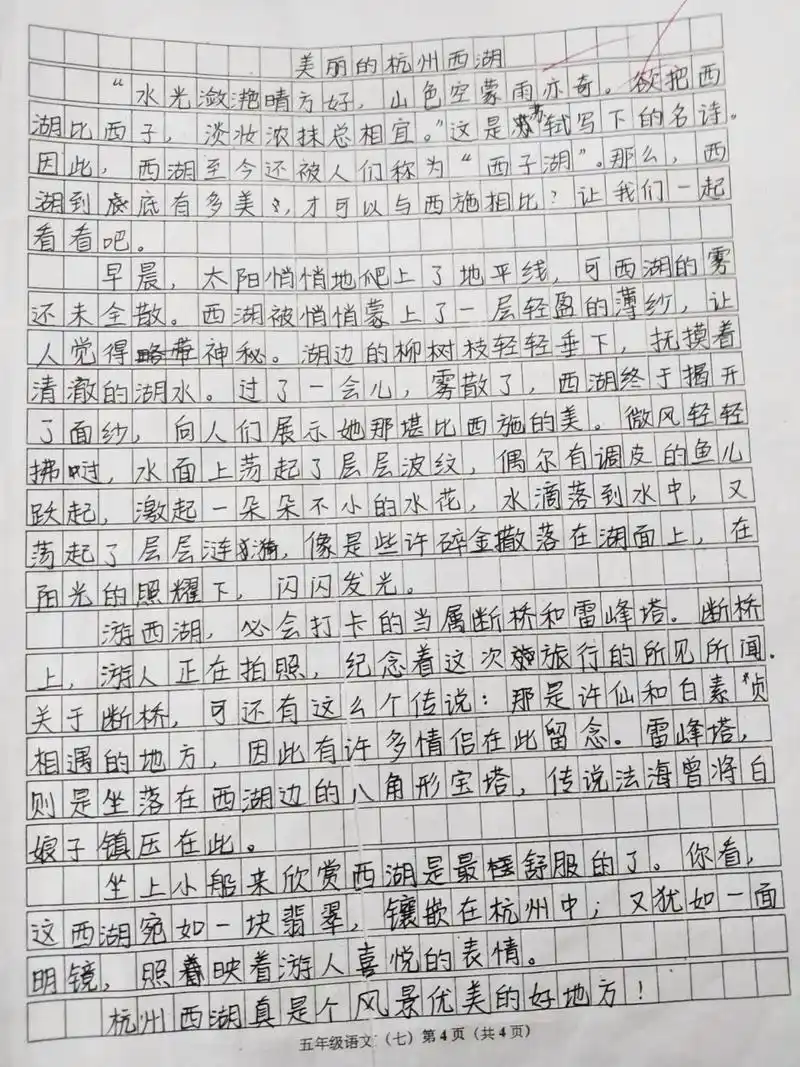 美丽的杭州西湖
“水光潋滟晴方好，山色空蒙雨亦奇。欲把西
湖比西子，淡妆浓抹总相宜。”这是苏轼写下的名诗。
因此，西湖至今还被人们称为“西子湖”。那么，西
湖到底有多美，才可以与西施相比？让我们一起
看看吧。
早晨，太阳悄悄地爬上了地平线，可西湖的雾
还未全散。西湖被悄悄蒙上了一层轻盈的薄纱，让
人觉得略带神秘。湖边的柳树枝轻轻垂下，抚摸着
清澈的湖水。过了一会儿，雾散了，西湖终于揭开
了面纱，向人们展示她那堪比西施的美。微风轻轻
拂时，水面上荡起了层层波纹，偶尔有调皮的鱼儿
跃起，激起一朵朵不小的水花，水滴落到水中，又
荡起了层层涟漪，像是些许碎金撒落在湖面上，在
阳光的照耀下，闪闪发光。
游西湖，必会打卡的当属断桥和雷峰塔。断桥
上，游人正在拍照，纪念着这次旅行的所见所闻.
关于断桥，可还有这么个传说：那是许仙和白素贞
相遇的地方，因此有许多情侣在此留念。雷峰塔，
则是坐落在西湖边的八角形宝塔，传说法海曾将白
娘子镇压在此。
坐上小船来欣赏西湖是最舒服的了。你看，
这西湖宛如一块翡翠，镶嵌在杭州中；又犹如一面
明镜，照映着游人喜悦的表情。
杭州西湖真是个风景优美的好地方！
五年级语文（七）第4页（共4页）